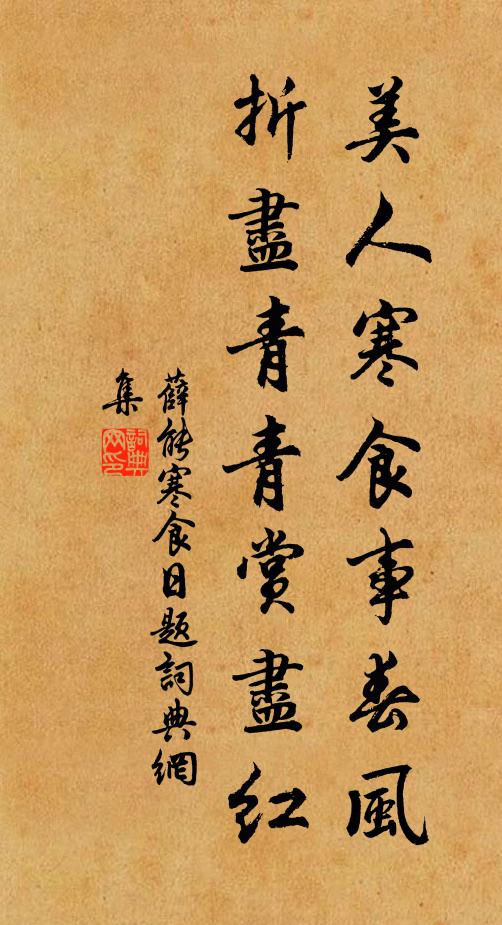 美人寒食事春風
折盡青青賞盡紅
薛能寒食日题詞典網
集
詞典網印